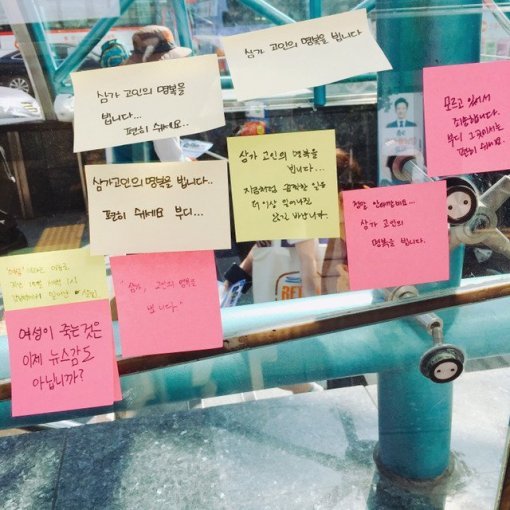 삼가 고인의 명복을 빕니다
삼가 고인의 명복을
빕니다...
편히 쉬세요..
모르고 있어서
죄송합니다.
부디 그곳에서는
편히 쉬세요.
삼가 고인의 명복을
빕니다...
지금처럼 끔찍한 일은
더이상 일어나질
않길 바랍니다.
삼가고인의 명복을 빕니다..
편히 쉬세요 부디...
삼가 고인의
명복을 빕니다.
"삼가, 고인의 명복을
빕니다."
여성이 죽는것은
이제 뉴스감도
아닙니까?